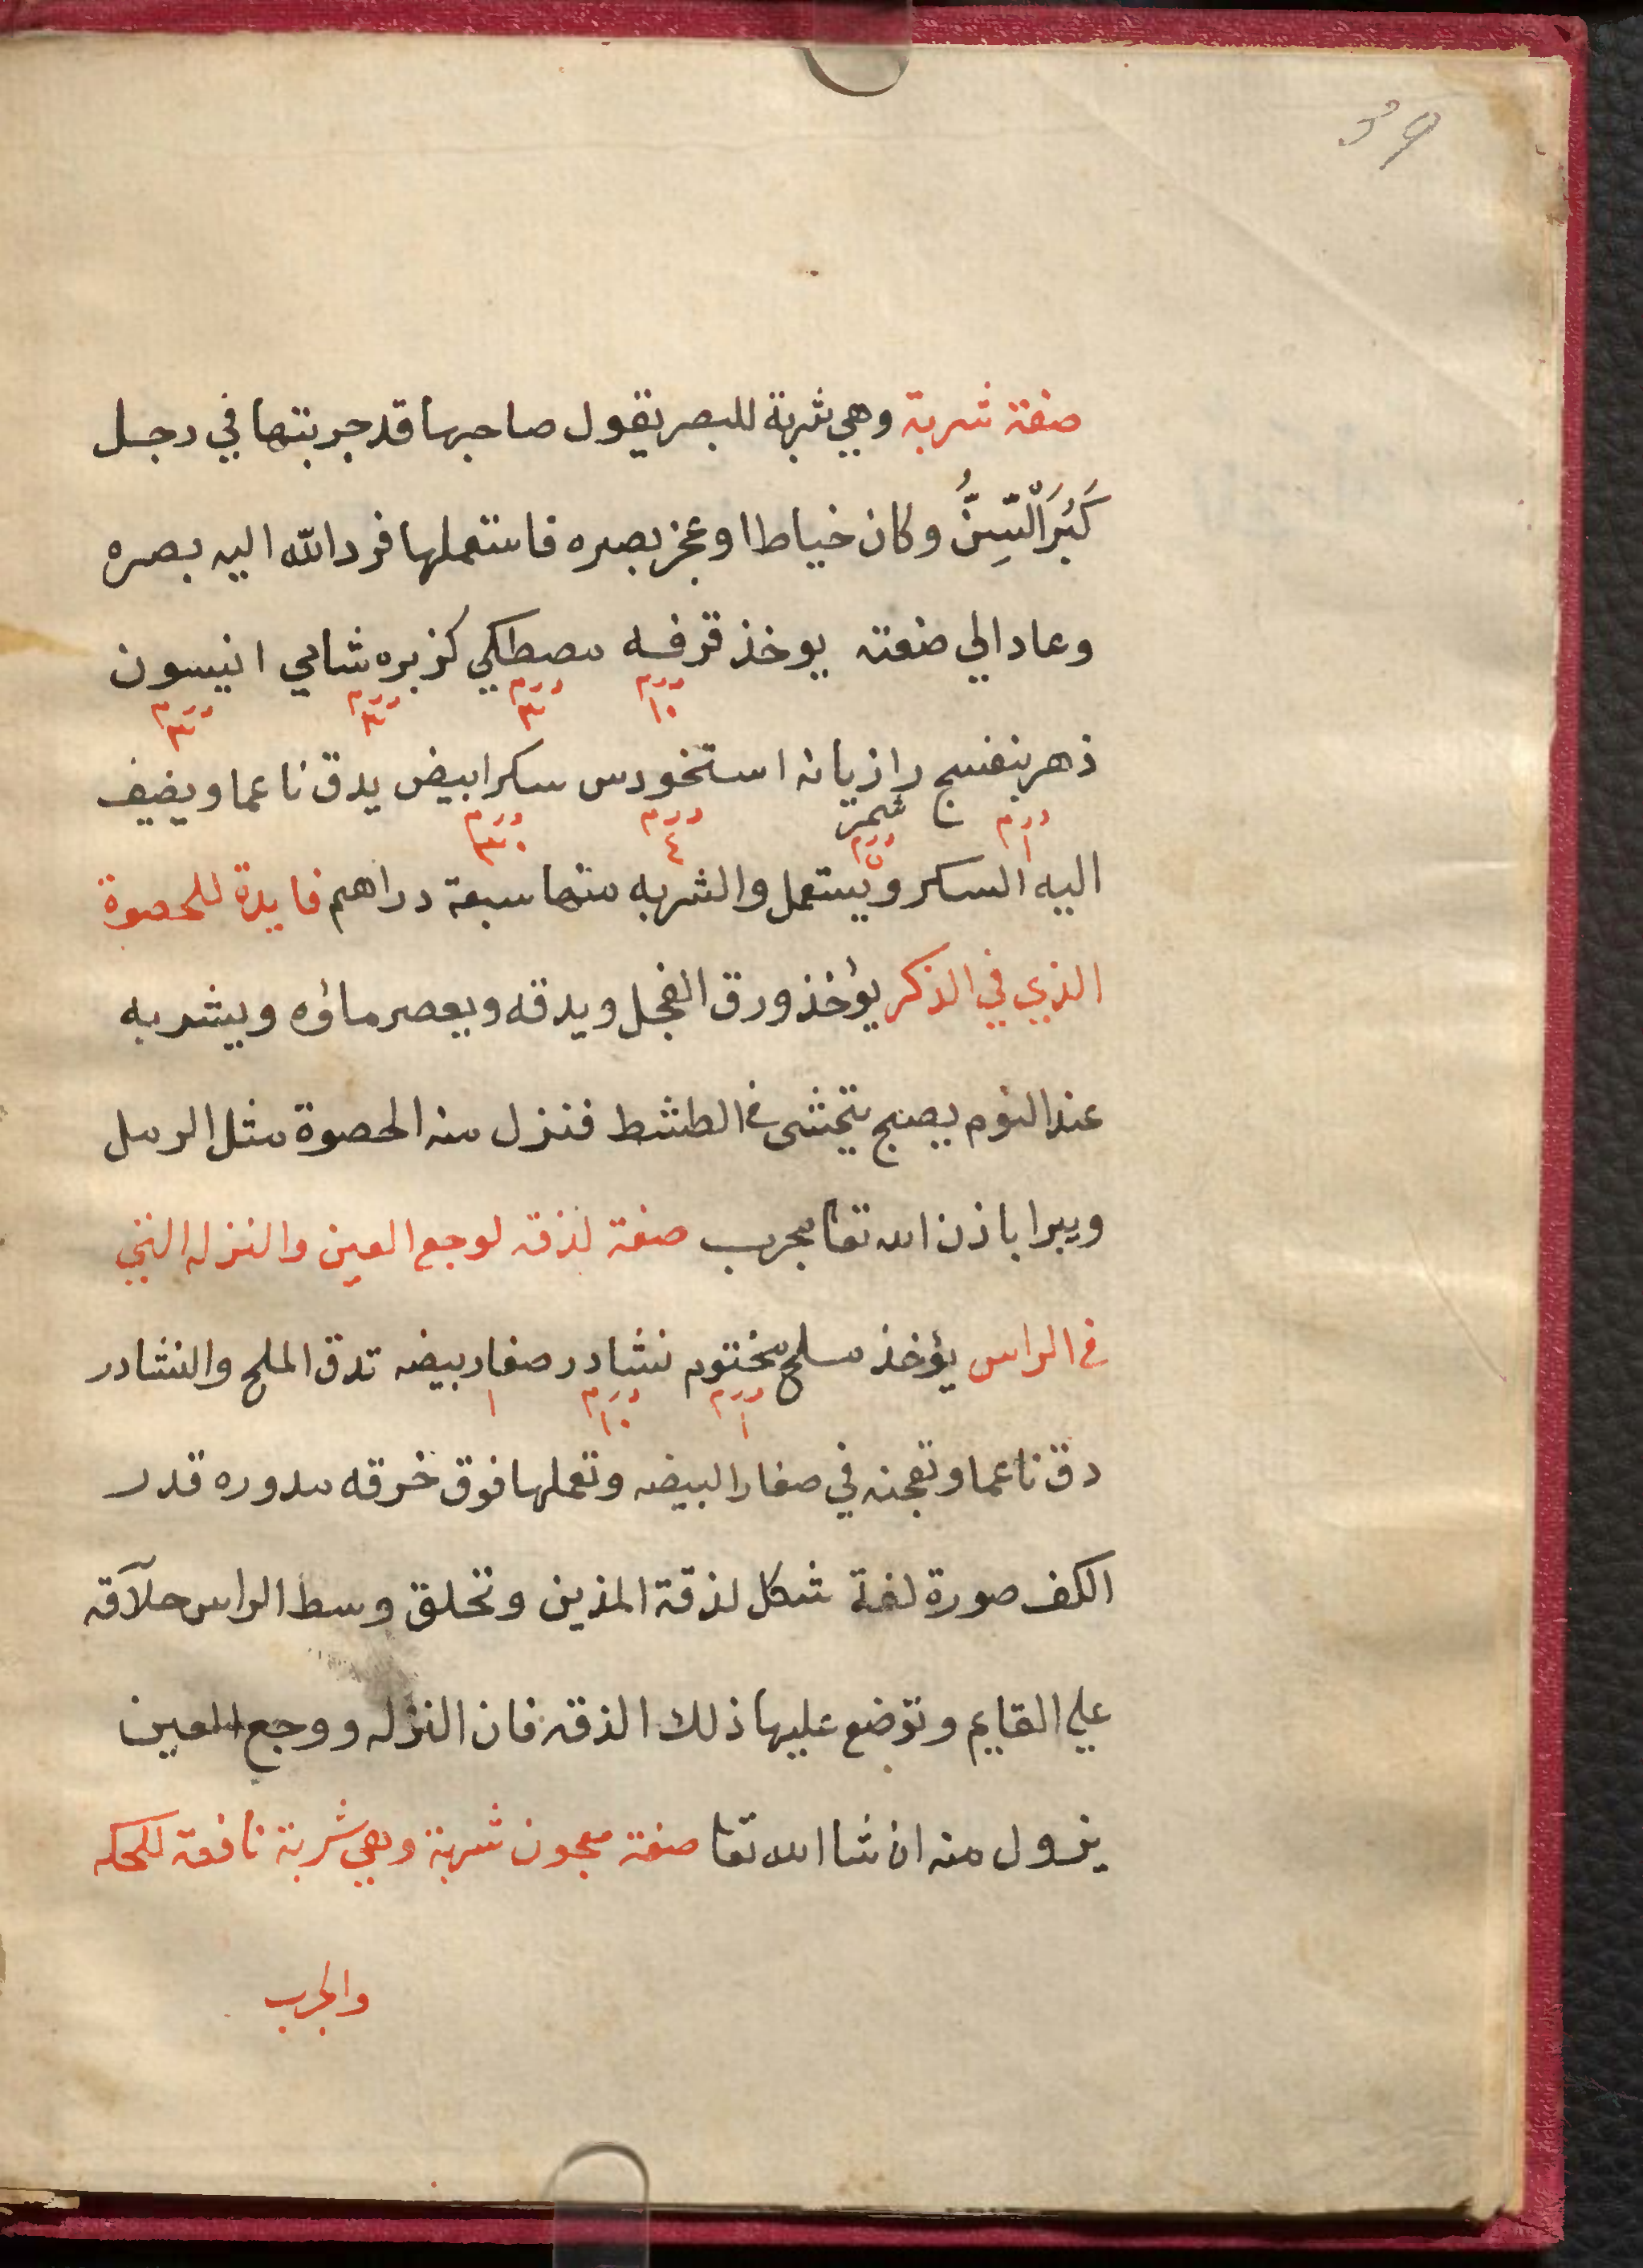 39
صفة شربة وهي شربة للبصر يقول صاحبها قد جربتها في رجل
كَبُرَ السِّنُّ وكان خياطا وعجز بصره فاستعملها فرد الله اليه بصره
وعاد الي صنعته يوخذ قرفه مصطكي كزبره شامي انيسون
درم ١٠ درم ٣ درم ٣ درم ٣
ذهر بنفسج رازيانه استخودس سكر ابيض يدق ناعما ويضيف
شمرة
درم ١ درم ٥ درم ٤ درم ٣٠
اليه السكر ويستعمل والشربه منها سبعة دراهم فايدة للحصوة
الذي في الذكر يؤخذ ورق الفجل ويدقه ويعصر ماؤه ويشربه
عند النوم يصبح في الطشط فنزل منه الحصوة مثل الرمل
ويبرا باذن الله تعا مجرب صفة لذقه لوجع العين والنزله التي
في الراس يؤخذ ملح مختوم نشادر صفار بيضه تدق الملح والنشادر
درم ١ درم ١٠ ١
دق ناعما وتعجنه في صفار البيضه وتعملها فوق خرقه مدوره قدر
الكف صورة شكل لذقة المذين وتحلق وسط الراس حلاقه
علي القايم وتوضع عليها ذلك الذقه فان النزله ووجع العين
يزول منه ان شا الله تعا صفة معجون شربة وهي شربة نافعة للحكه
والجرب